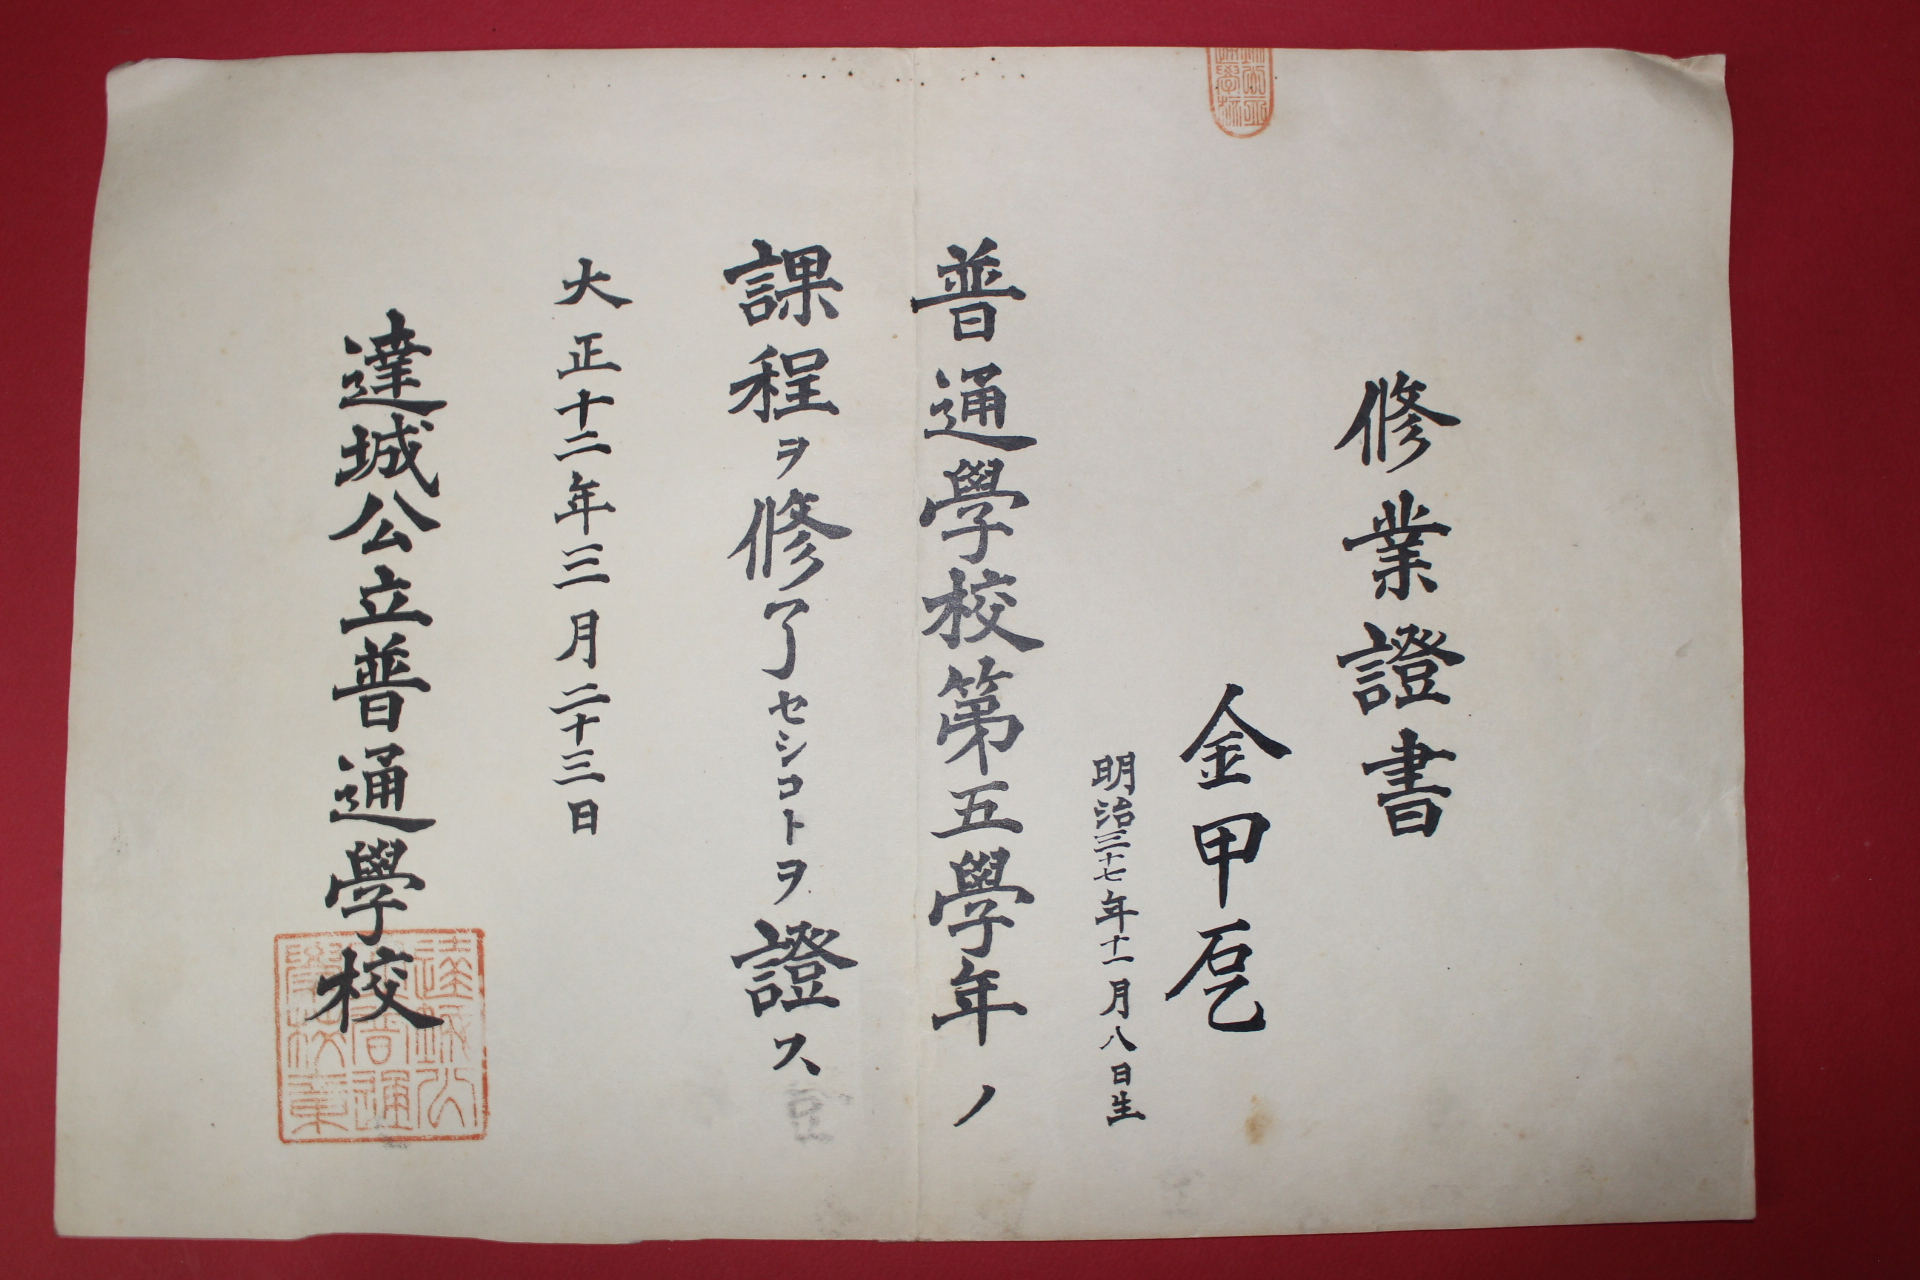 修業證書
金甲乭
明治三十七年十一月八日生
普通學校第五學年ノ
課程ヲ修了セシコトヲ證ス
大正十二年三月二十三日
達城公立普通學校
達城公立普通學校章